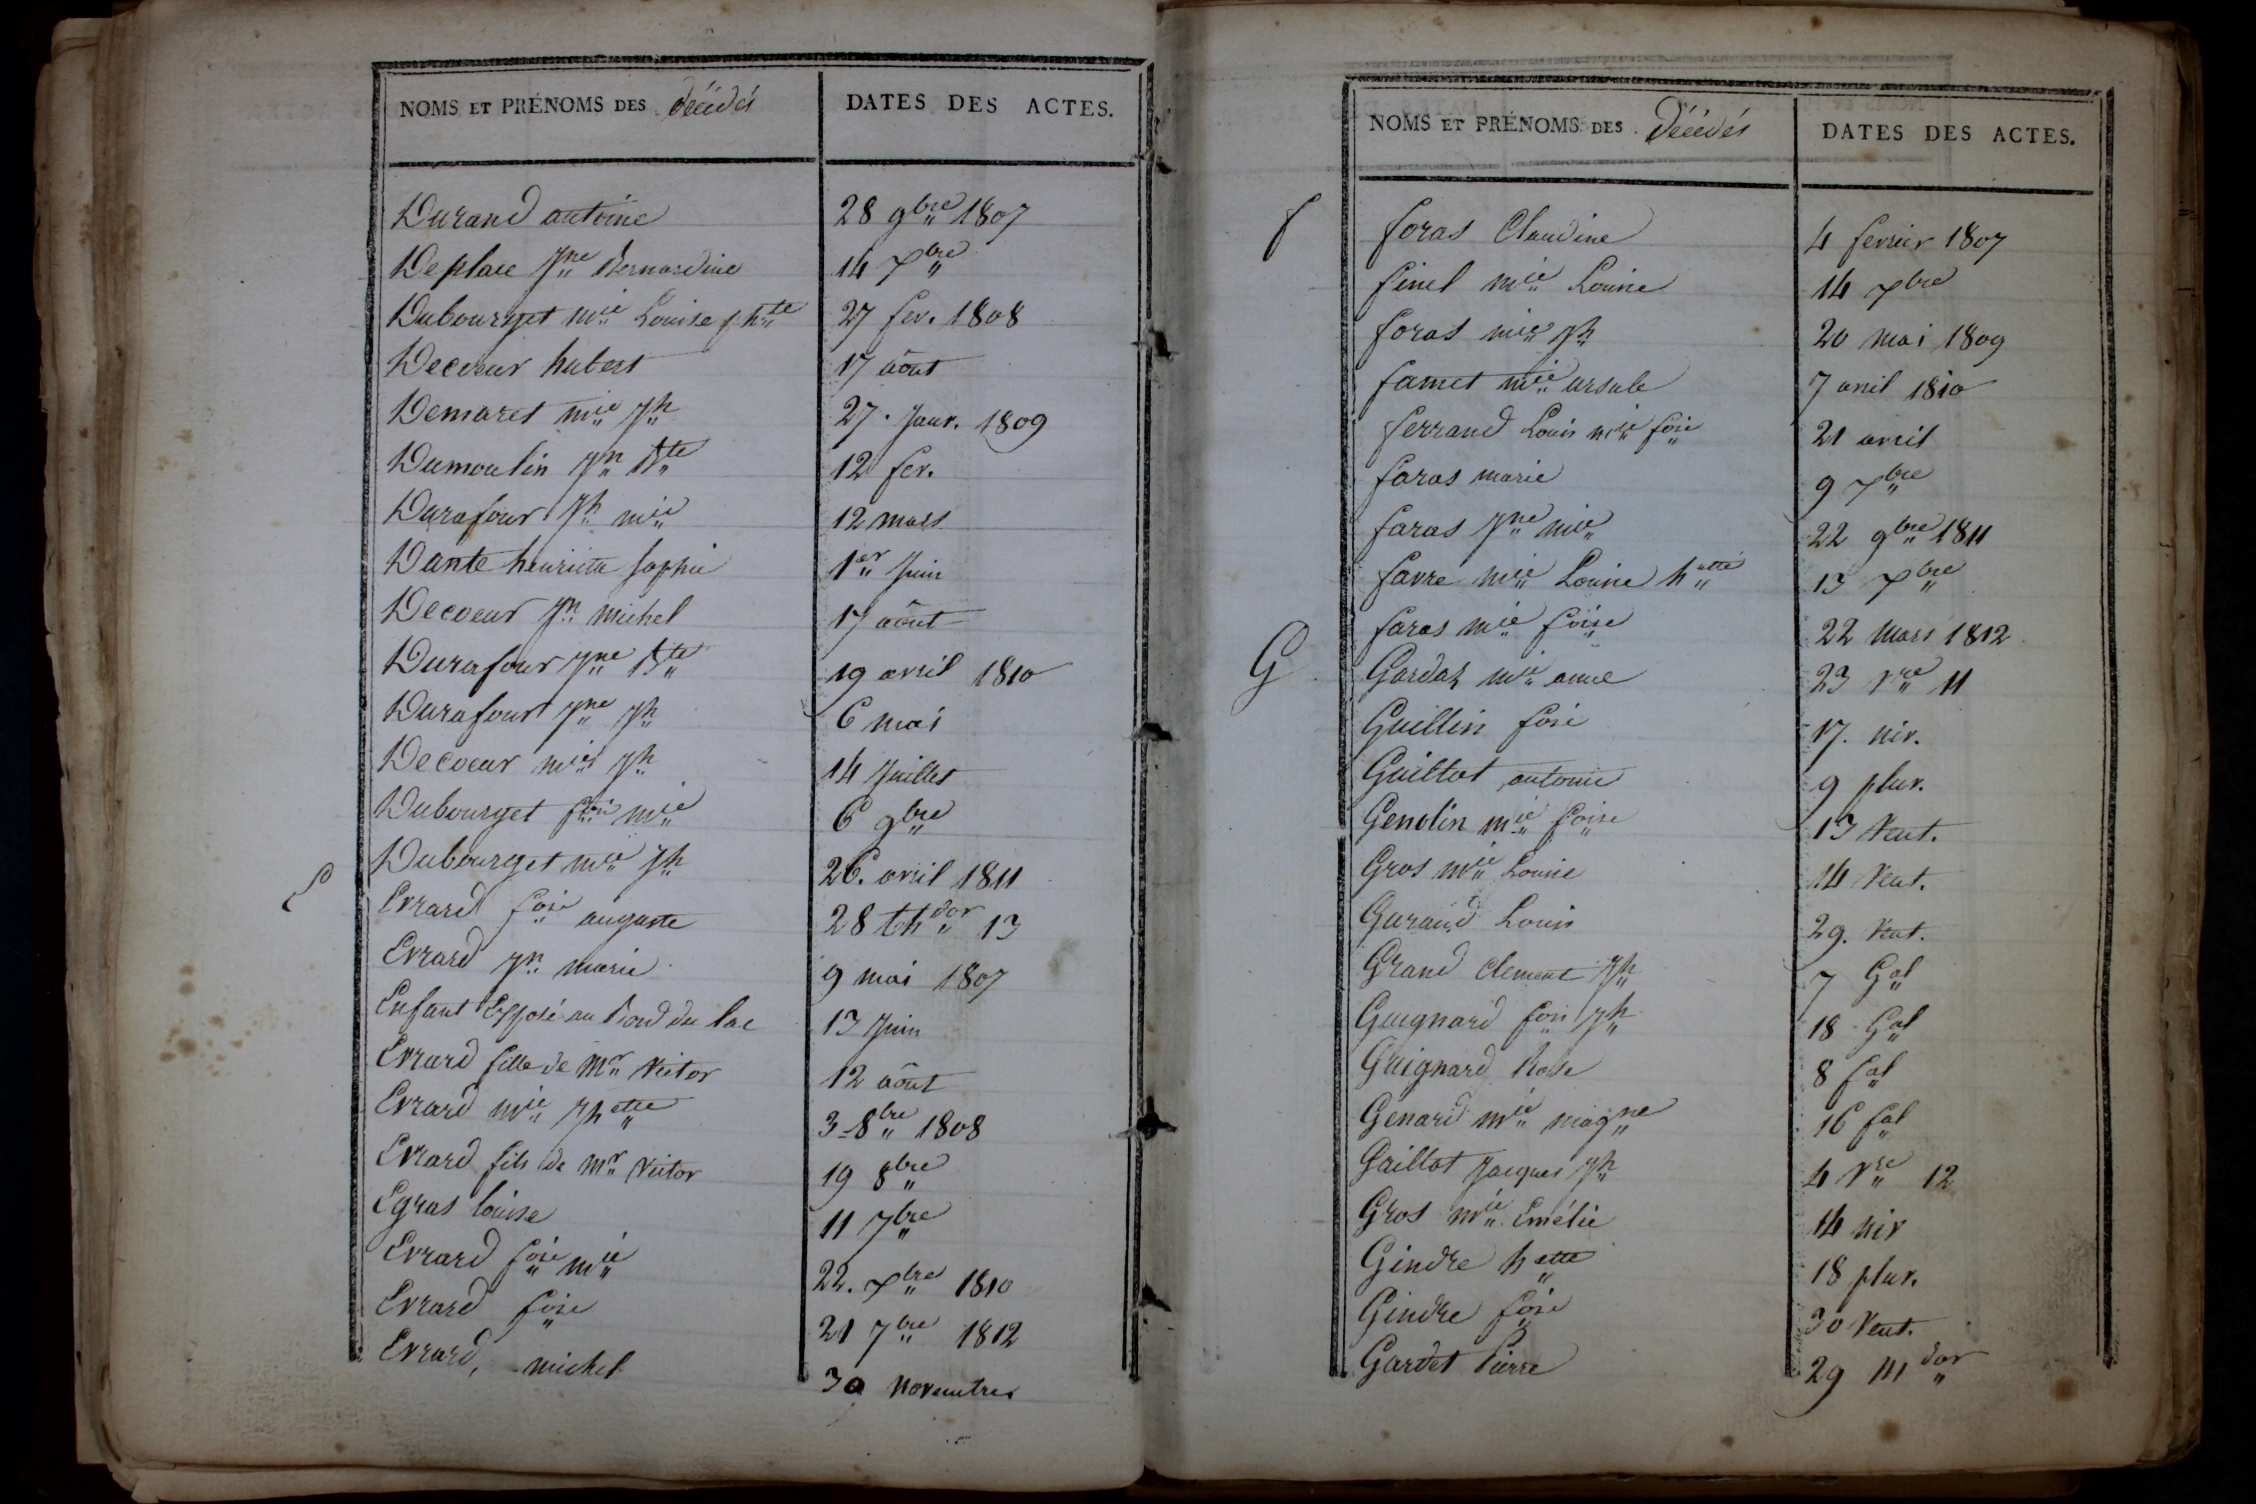 NOMS ET PRÉNOMS DES décédés DATES DES ACTES.
Durand antoine 28 9bre 1807
Deplace Jne Bernardine 14 Xbre
Dubourget mie Louise phtte 27 fev. 1808
Decoeur hubert 17 août
Demaret mie Jh 27. Janv. 1809
Dumoulin Jn Bte 12 fev.
Durafour Jh mie 12 mars
Dante henriette Sophie 1er Juin
Decoeur Jn michel 17 août
Durafour Jne Bte 19 avril 1810
Durafour Jne Jh 6 mai
Decoeur mie Jh 14 Juillet
Dubourget foise mie 6 9bre
Dubourget mie Jh 26. avril 1811
E
Evrard foise auguste 28 thdor 13
Evrard Jn marie 9 mai 1807
Enfant Exposé au Bord du lac 13 Juin
Evrard fille de Mr Victor 12 août
Evrard mie Jhette 3 8bre 1808
Evrard fils de Mr Victor 19 8bre
Egras louise 11 7bre
Evrard foise mie 22. Xbre 1810
Evrard foise 21 7bre 1812
Evrard, michel 30 Novembre
NOMS ET PRÉNOMS DES Décédés DATES DES ACTES.
f
foras Claudine 4 fevrier 1807
finel mie Louise 14 Xbre
foras mie Jh 20 mai 1809
famet mie ursule 7 avril 1810
ferrand Louis mie foise 21 avril
faras marie 9 Xbre
faras Jne mie 22 9bre 1811
favre mie Louise hette 13 Xbre
faras mie foise 22 mars 1812
G
Gardaz mie anne 23 Vre 11
Guillin foise 17. niv.
Guillot antoine 9 pluv.
Genolin mie foise 13 Vent.
Gros mie Louise 14 Vent.
Guraud Louis 29. Vent.
Grand Clement Jh 7 Gal
Guignard fois Jh 18 Gal
Guignard Rose 8 fal
Genard mie magne 16 fal
Guillot Jacques Jh 4 Vre 12
Gros mie Emélie 14 niv
Gindre hette 18 pluv.
Gindre foise 30 Vent.
Gardet Pierre 29 Mdor